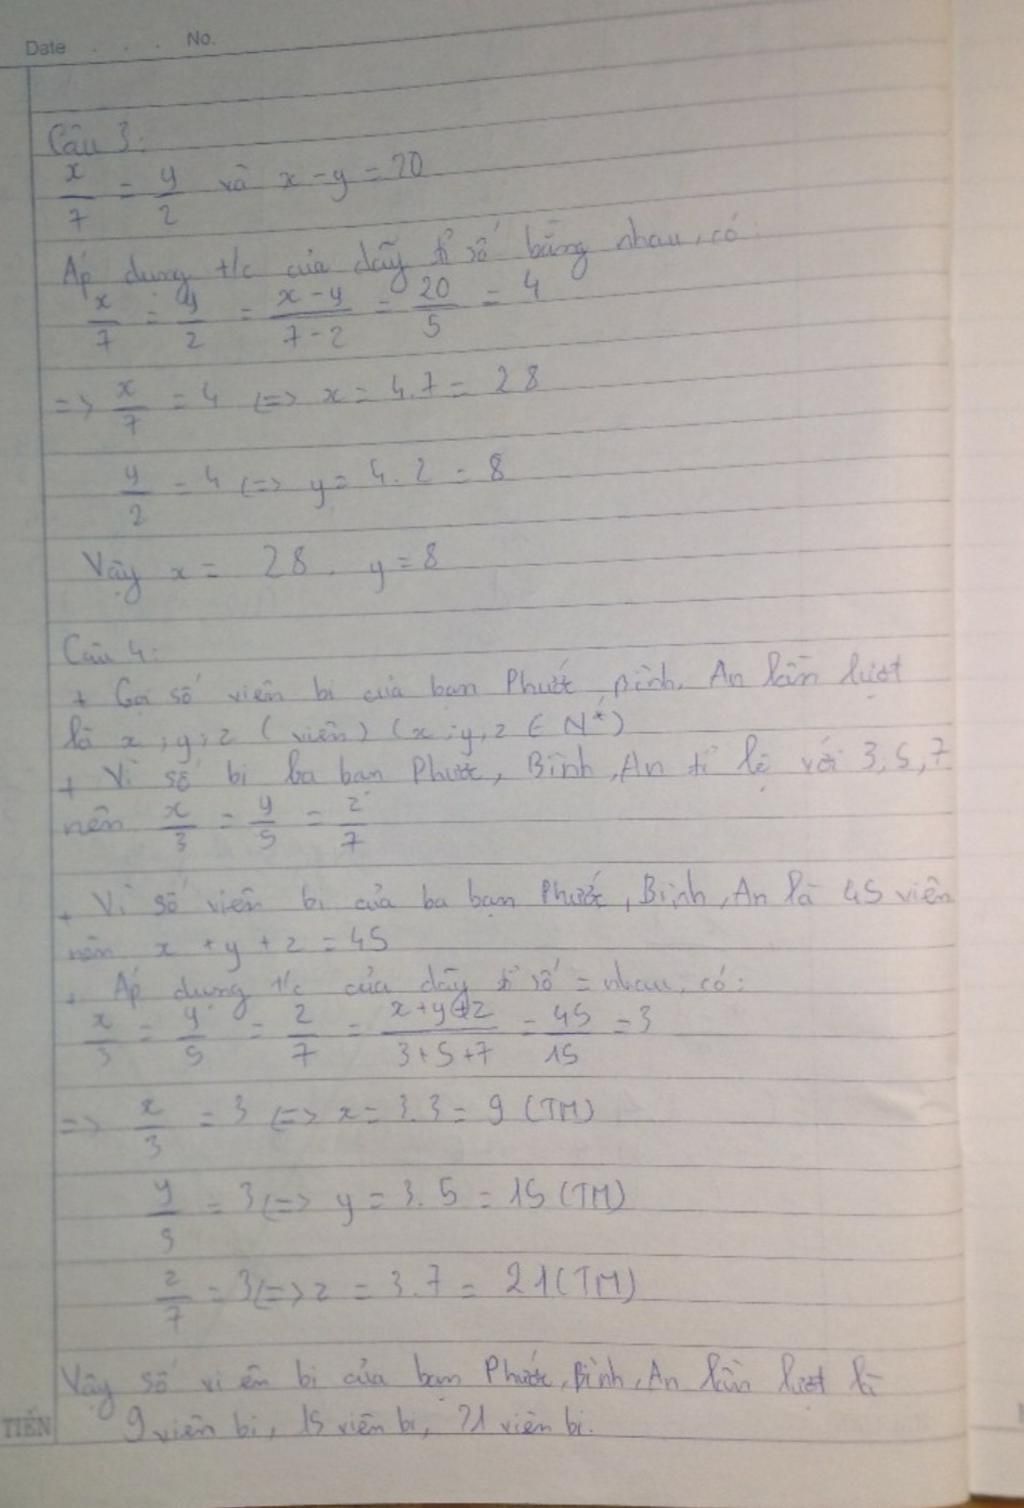 Date . . . No.
Câu 3:
x/7 = y/2 và x - y = 20
Áp dụng t/c của dãy tỉ số bằng nhau, có:
x/7 = y/2 = (x - y)/(7 - 2) = 20/5 = 4
=> x/7 = 4 <=> x = 4.7 = 28
y/2 = 4 <=> y = 4.2 = 8
Vậy x = 28, y = 8
Câu 4:
+ Gọi số viên bi của bạn Phước, Bình, An lần lượt
là x; y; z (viên) (x; y, z ∈ N*)
+ Vì số bi ba bạn Phước, Bình, An tỉ lệ với 3, 5, 7
nên x/3 = y/5 = z/7
+ Vì số viên bi của ba bạn Phước, Bình, An là 45 viên
nên x + y + z = 45
+ Áp dụng t/c của dãy tỉ số = nhau, có:
x/3 = y/5 = z/7 = (x + y + z)/(3 + 5 + 7) = 45/15 = 3
=> x/3 = 3 <=> x = 3.3 = 9 (TM)
y/5 = 3 <=> y = 3.5 = 15 (TM)
z/7 = 3 <=> z = 3.7 = 21 (TM)
Vậy số viên bi của bạn Phước, Bình, An lần lượt là
9 viên bi, 15 viên bi, 21 viên bi.
TIẾN